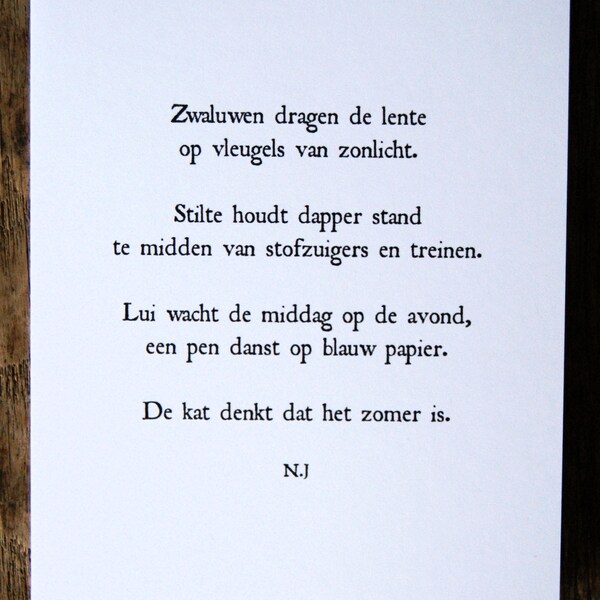 Zwaluwen dragen de lente
op vleugels van zonlicht.
Stilte houdt dapper stand
te midden van stofzuigers en treinen.
Lui wacht de middag op de avond,
een pen danst op blauw papier.
De kat denkt dat het zomer is.
N.J